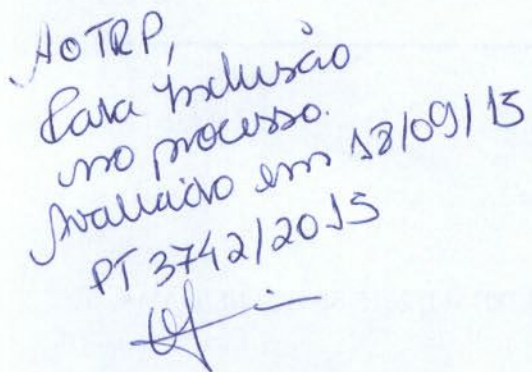 Ao TRP,
Para Inclusão
no processo.
Avaliado em 18/09/15
PT 3742/2015